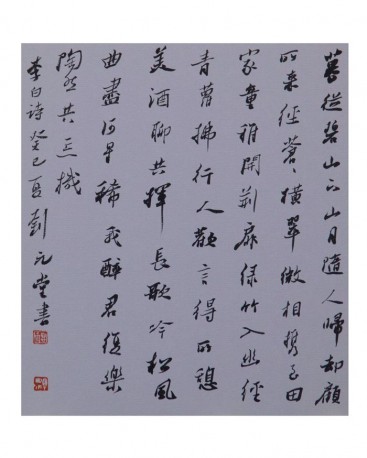 暮從碧山下山月隨人歸却顧
所來徑蒼〻橫翠微相攜及田
家童稚開荆扉綠竹入幽徑
青蘿拂行衣歡言得所憩
美酒聊共揮長歌吟松風
曲盡河星稀我醉君復樂
陶然共忘機
李白詩癸巳夏劉元堂書